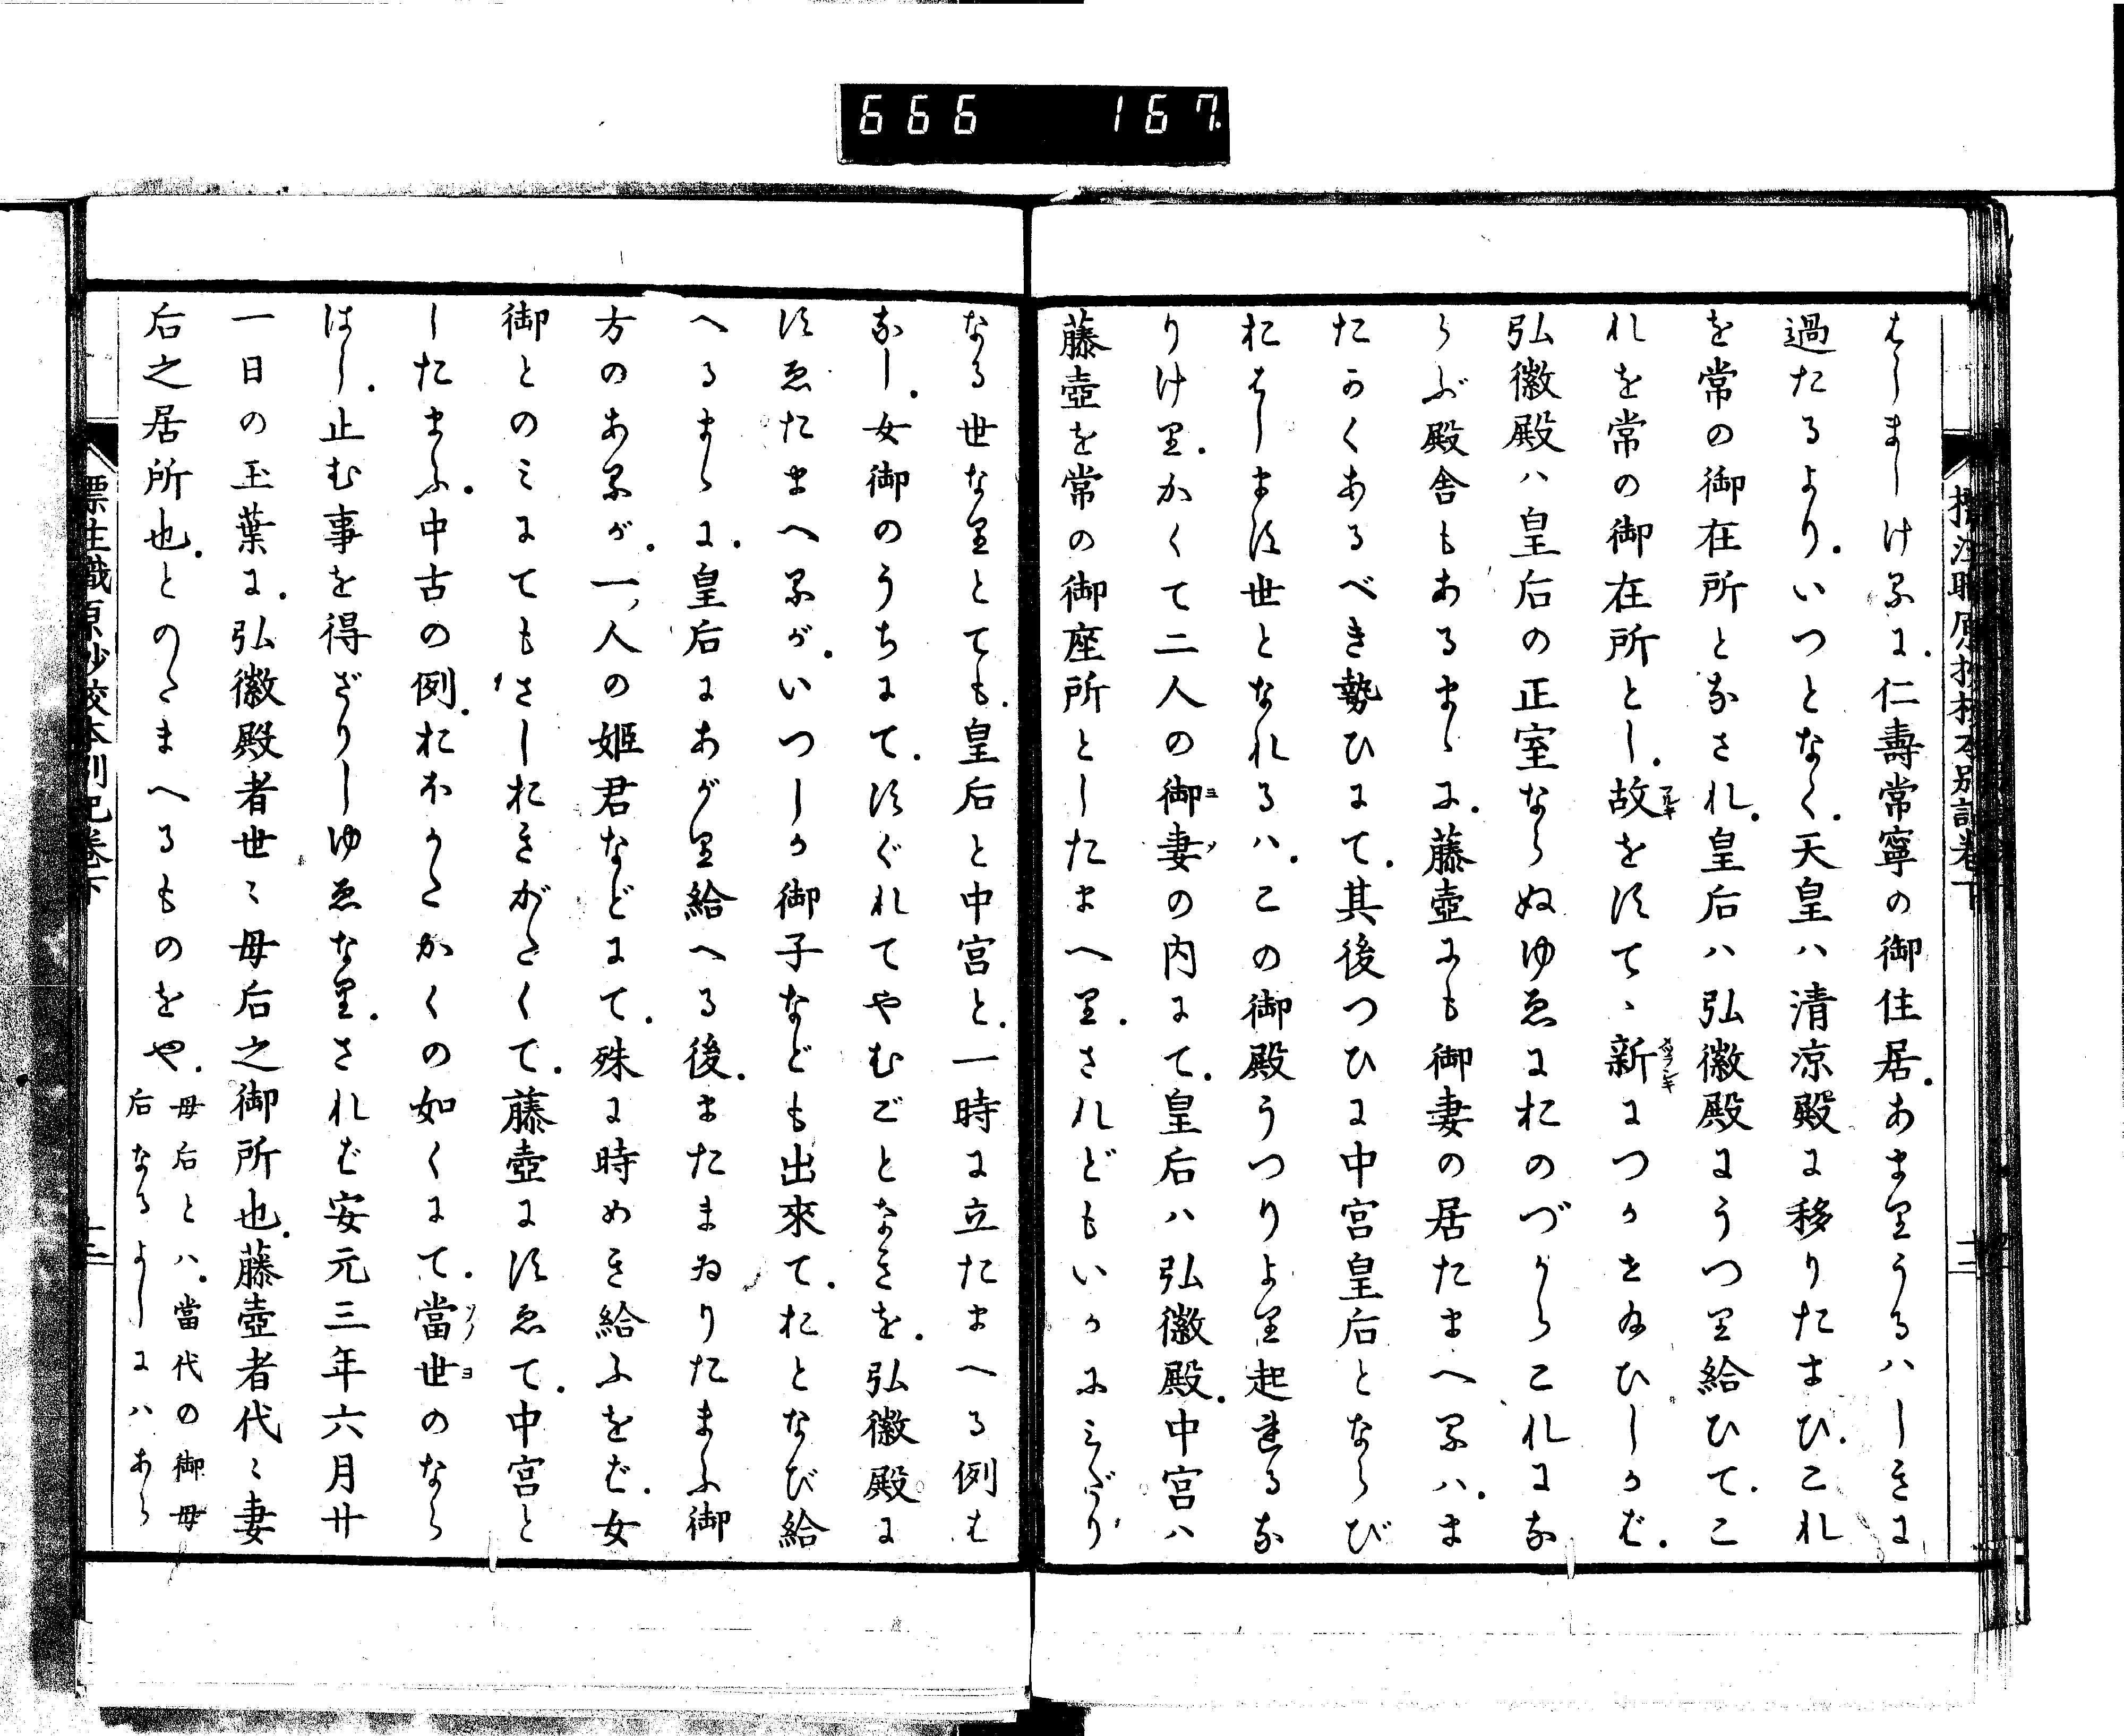 666 167.
標注職原抄校本別記卷下
はしましけるに.仁壽常寧の御住居.あまりうるハしきに
過たるより.いつとなく.天皇ハ清涼殿に移りたまひ.これ
を常の御在所となされ.皇后ハ弘徽殿にうつり給ひて.こ
れを常の御在所とし.故をすてゝ新につかせ給ひしかバ.
弘徽殿ハ皇后の正室ならぬゆゑにおのづからこれにな
らぶ殿舎もあるまゝに.藤壺にも御妻の居たまへるハ.ま
たかくあるべき勢ひにて.其後つひに中宮皇后とならび
おはします世となれるハ.この御殿うつりより起れるな
りけり.かくて二人の御妻の内にて.皇后ハ弘徽殿.中宮ハ
藤壺を常の御座所としたまへり.されどもいかにみだり
なる世なりとても.皇后と中宮と.一時に立たまへる例は
なし.女御のうちにて.すぐれてやむごとなきを.弘徽殿に
すゑたまへるが.いつしか御子なども出來て.おとなび給
へるまゝに.皇后にあがり給へる後.またまゐりたまふ御
方のあるが.一人の姫君などにて.殊に時めき給ふをば.女
御とのみにてもさしおきがたくて.藤壺にすゑて.中宮と
したまふ.中古の例.おほかたかくの如くにて.當世のなら
はし.止む事を得ざりしゆゑなり.されば安元三年六月廿
一日の玉葉に.弘徽殿者世々母后之御所也.藤壺者代々妻
后之居所也.とのたまへるものをや.母后とハ.當代の御母
后なるよしにハあら
標注職原抄校本別記卷下